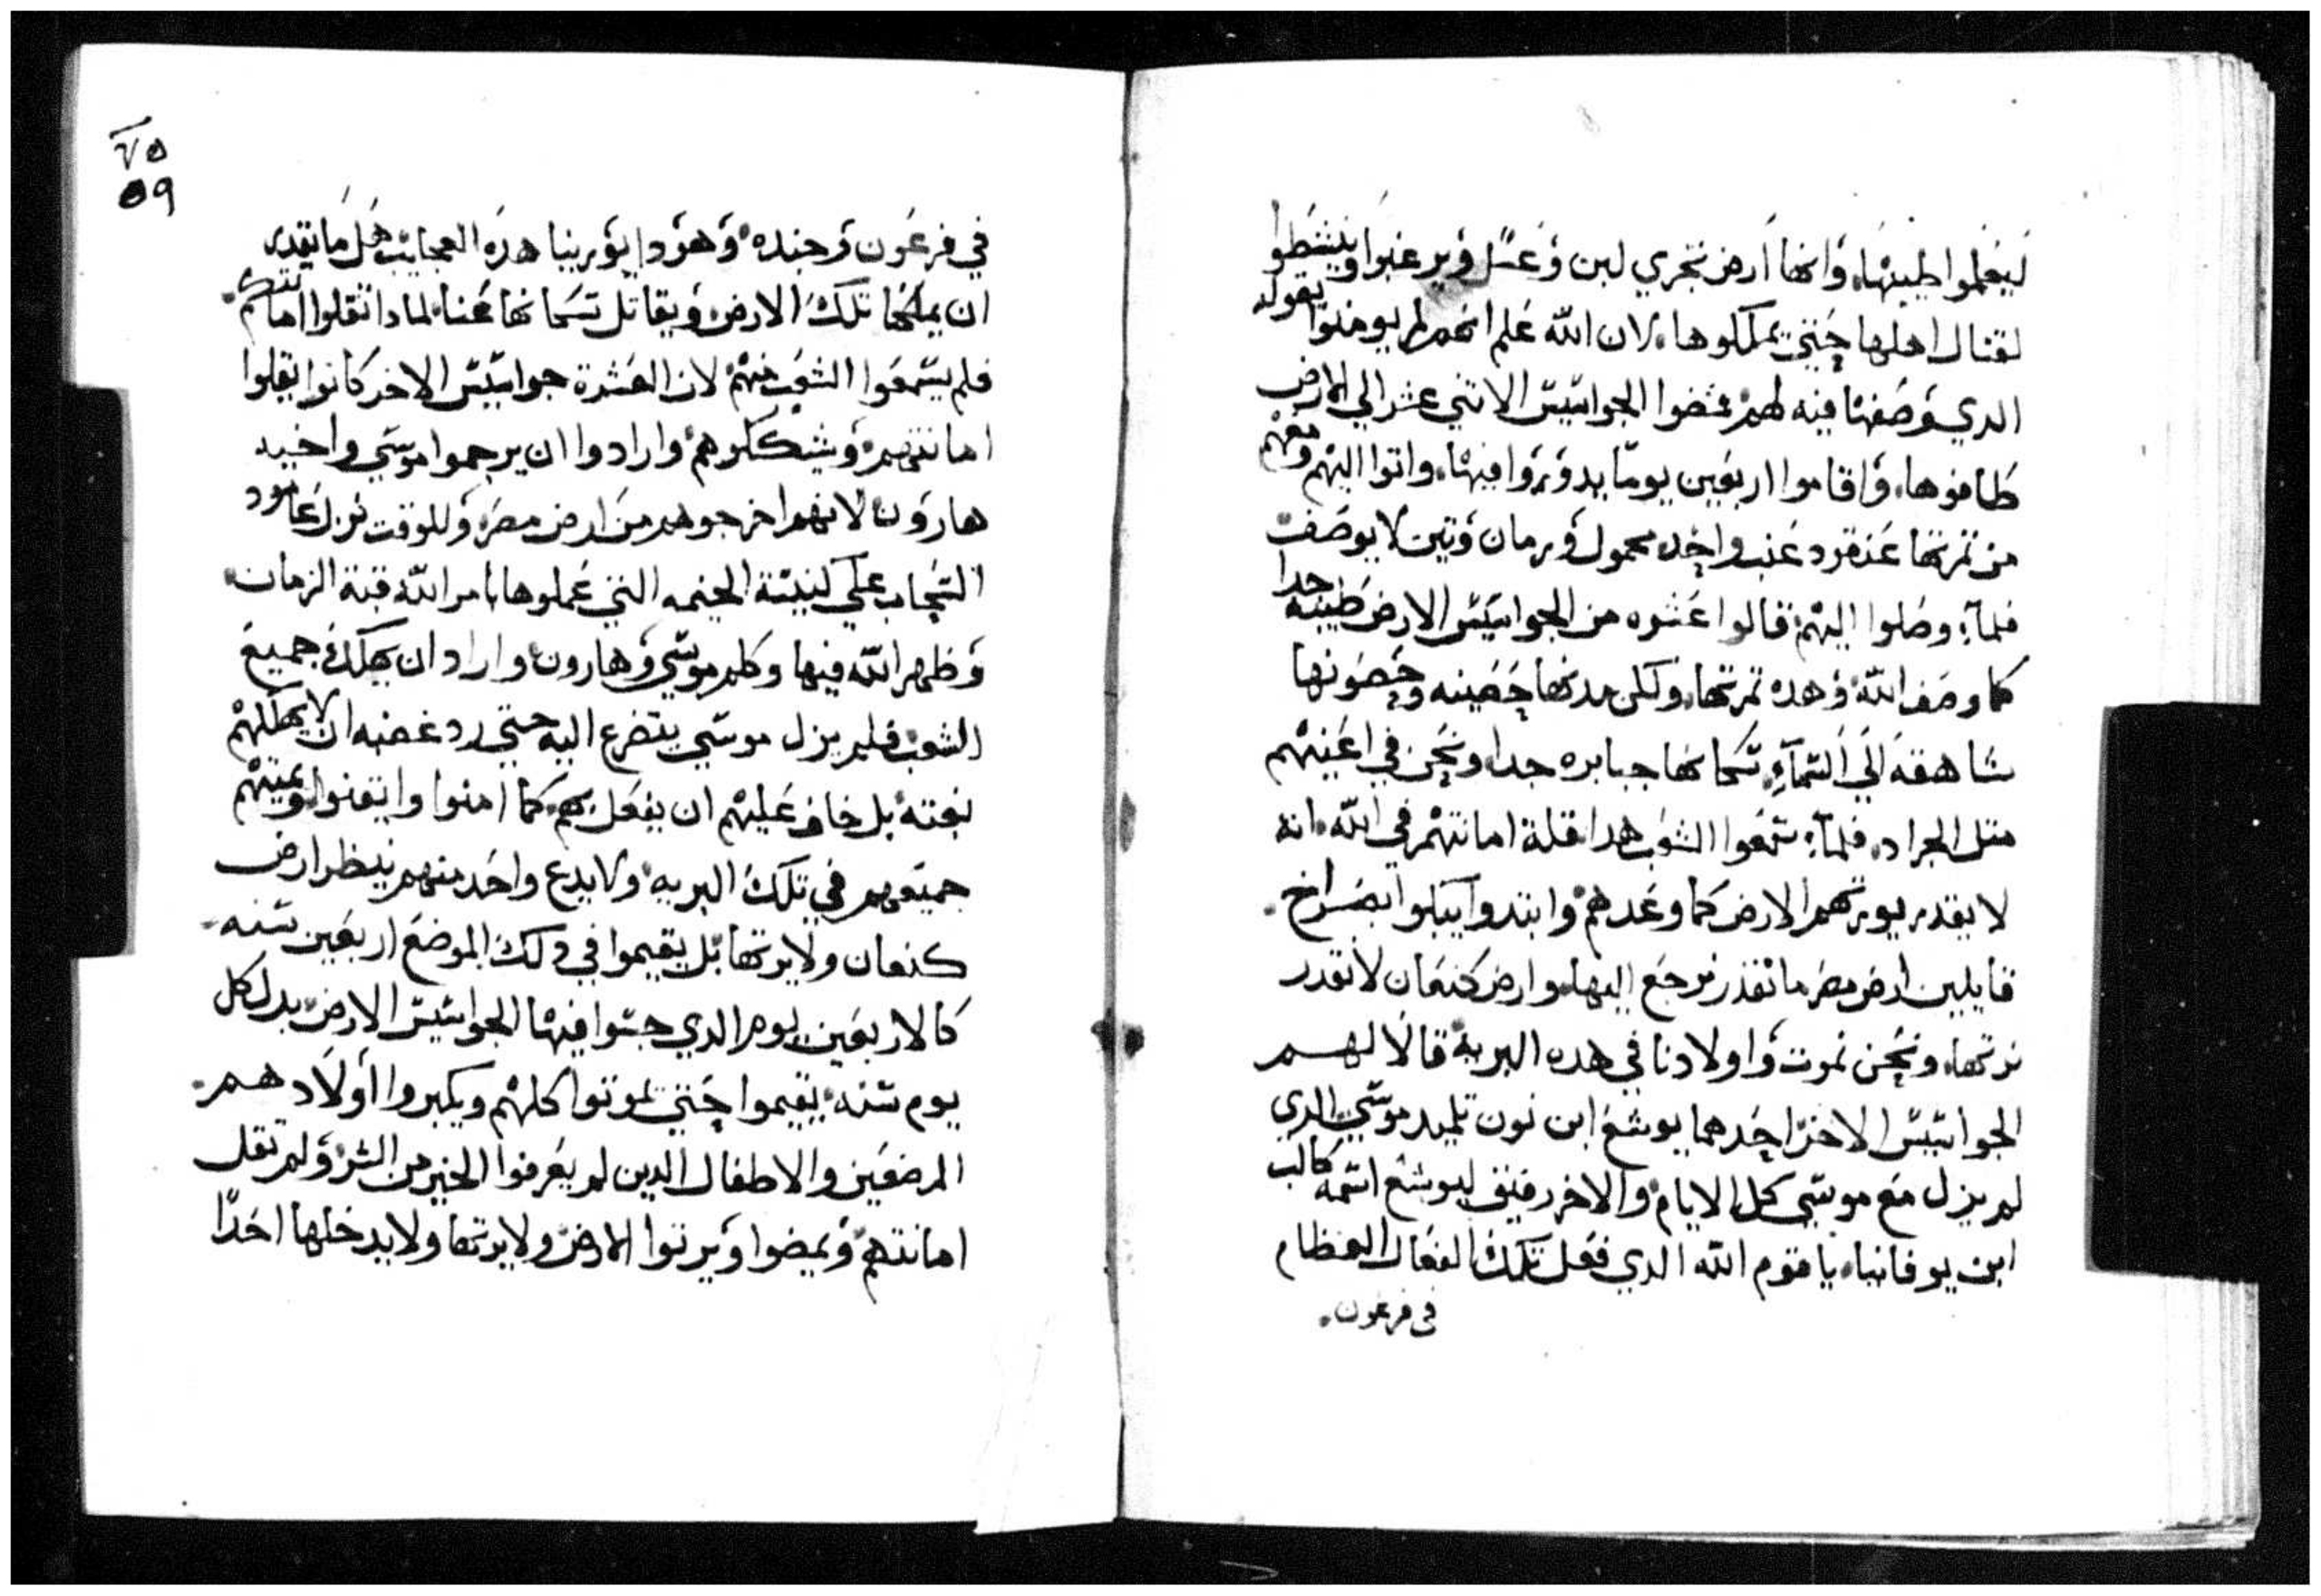 ليعلموا طيبتها وانها ارض تجري لبن وعسل ويرغبوا وينشطوا
لقتال اهلها حتي يملكوها لان الله علم انهم لم يومنوا بقوله
الدي وصفها فيه لهم فمضوا الجواسيس الاتني عشر الي الارض
طافوها واقاموا اربعين يوما يدوروا فيها واتوا اليهم ومعهم
من تمرتها عنقود عنب واحد محمول ورمان وتين لا يوصف
فلمآ وصلوا اليهم قالوا عشره من الجواسيس الارض طيبه جدا
كما وصف الله وهده تمرتها ولكن مدنها حصينه وحصونها
شاهقه الي السمآء سكانها جبابره جدا ونحن في اعينهم
متل الجراد فلمآ سمعوا الشعب هدا قلة امانتهم في الله انه
لا يقدر يورتهم الارض كما وعدهم وابتدوا يبكوا بصراخ
قايلين ارض مصر ما نقدر نرجع اليها وارض كنعان لا نقدر
نرتها ونحن نموت واولادنا في هده البرية قالا لهم
الجواسيس الاخر احدهما يوشع ابن نون تلميد موسي الدي
لم يزل مع موسي كل الايام والاخر رفيق ليوشع اسمه كالب
ابن يوفانيا يا قوم الله الدي فعل تلك الفعال العظام
في فرعون
٧٥
٥٩
في فرعون وجنده وهودا يورينا هده العجايب هل ما يقدر
ان يملكنا تلك الارض ويقاتل سكانها عنا لمادا تقلوا امانتكم
فلم يسمعوا الشعب منهم لان العشرة جواسيس الاخر كانوا يقلوا
امانتهم ويشككوهم وارادوا ان يرجموا موسي واخيه
هارون لانهم اخرجوهم من ارض مصر وللوقت نزل عامود
السحاب علي كنيسة الخيمه التي عملوها بامر الله قبة الزمان
وظهر الله فيها وكلم موسي وهارون واراد ان يهلك جميع
الشعب فلم يزل موسي يتضرع اليه حتي رد غضبه ان لا يهلكهم
بغتة بل خاف عليهم ان يفعل بهم كما امنوا وايقنوا ويميتهم
جميعهم في تلك البريه ولا يدع واحد منهم ينظر ارض
كنعان ولا يرتها بل يقيموا في دلك الموضع اربعين سنه
كالاربعين يوم الدي جسوا فيها الجواسيس الارض بدل كل
يوم سنه يقيموا حتي يموتوا كلهم ويكبروا اولادهم
المرضعين والاطفال الدين لم يعرفوا الخير من الشر ولم تقل
امانتهم ويمضوا ويرتوا الارض ولا يرتها ولا يدخلها احدا